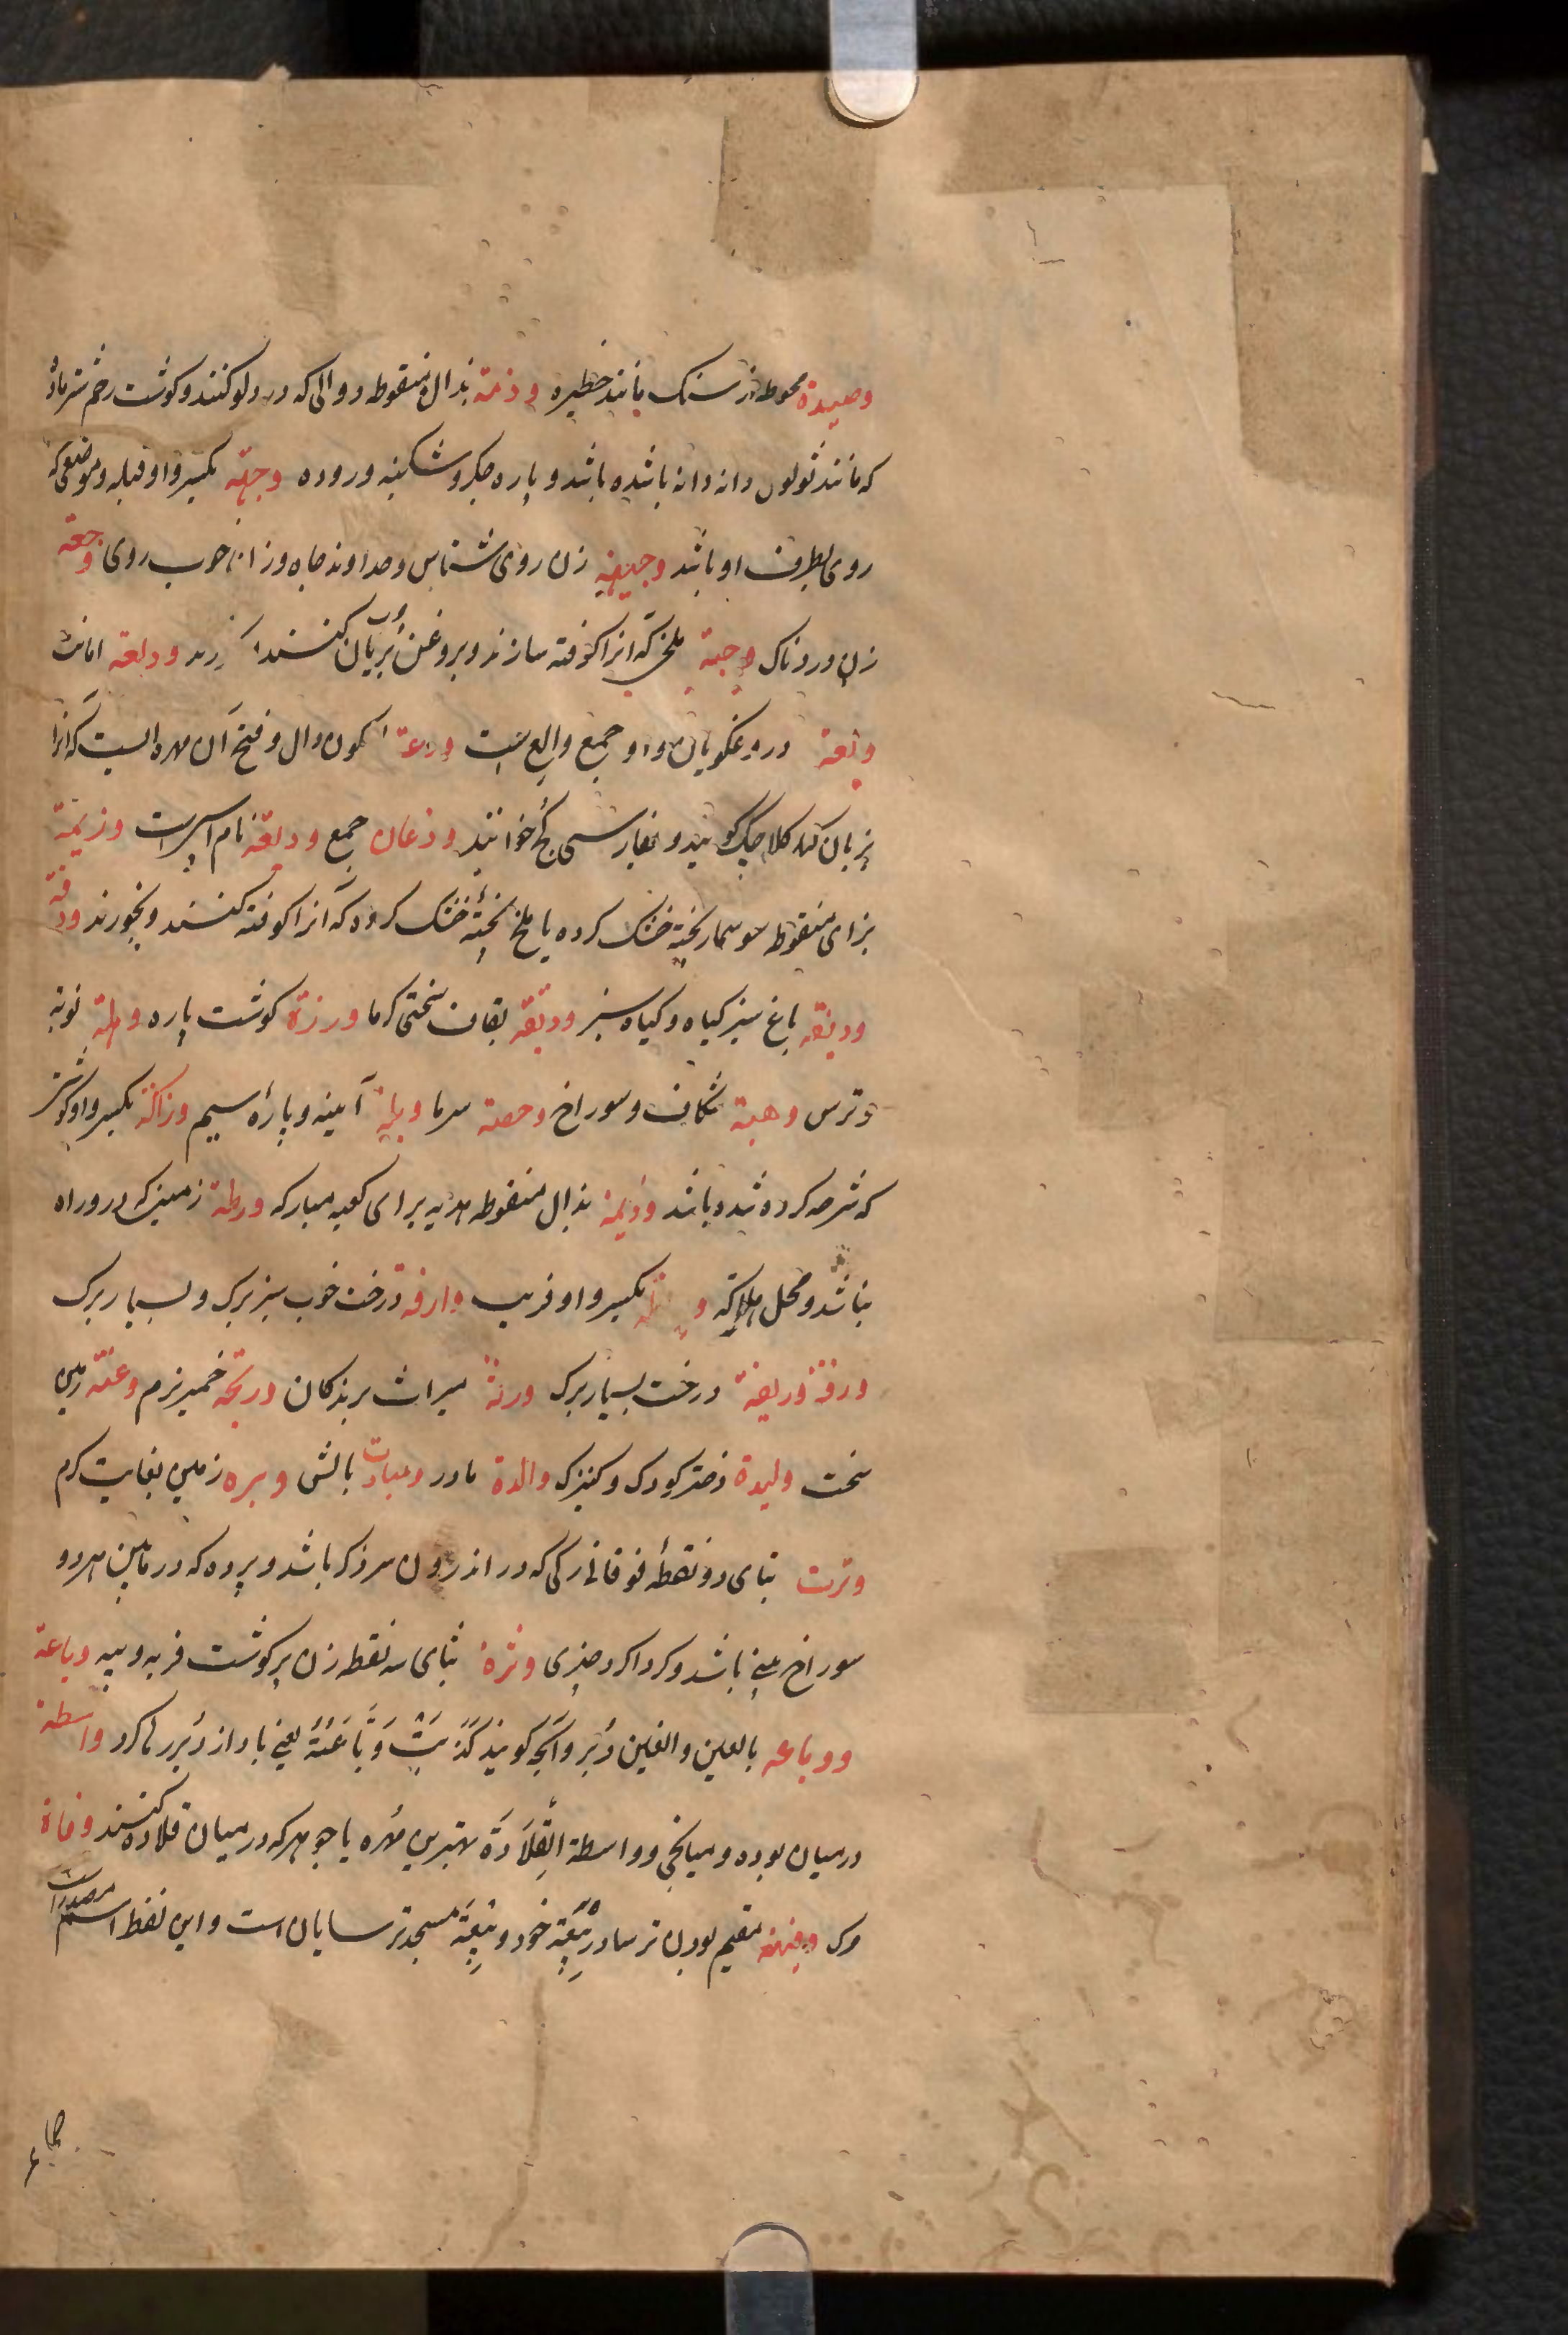 وصیدة محوطه از سنک مانند خطیره وذمة بذال منقوطه دوالی که در دلو کنند و کوشت رحم شتر ماده
که مانند ثولول دانه دانه باشده باشد و پاره جکر و شکنبه و روده وجهة بکسر واو قبله و موضعی که
روی بطرف او باشد وجیهه زن روی شناس و خداوند جاه و زن خوب روی وجعة
زن دردناک وجبة ملخی که انرا کوفته سازند و بروغن بریان کنند ودیعة امانت
ولعة دروغکویان و او جمع والع است ودعة سکون دال و فتح آن مهره ایست که انرا
بزبان کلاجک کویند و بفارسی کج خوانند ودعان جمع ودیعة نام است وزیمة
بزای منقوطه سوسمار پخته خشک کرده یا ملخ پختهٔ خشک کرده که آنرا کوفته کنند و بخورند ودفة
ودیفة باغ سبز کیاه و کیاه سبز ودیقة بقاف سختی کرما وذرة کوشت پاره وهلة نوبة
و ترس وهیة شکاف و سوراخ سرما وذیلة آیینه و پارهٔ سیم بکسر واو کوشت
که شرحه کرده شده باشد وذیمة بذال منقوطه هدیه برای کعبه مبارکه ورطة زمینی که در و راه
نباشد و محل هلاکة بکسر واو فریب وارفة درخت خوب سبز برک و بسیار برک
ورقة وریقة درخت بسیار برک ورثة میراث برندکان وریخة خمیر نرم وعثة زمین
سخت ولیدة دختر کودک و کنیزک والدة مادر بالش وبره زمین بغایت کرم
وترت بتای دو نقطهٔ فوقانی رکی که در اندرون سر ذکر باشد و پرده که در مابین هر دو
سوراخ بینی باشد و کرداکرد چیزی وثرة بثای سه نقطه زن پر کوشت فربه و پیه وباعة
ووباعه بالعین والغین دبر و آنچه کویند کذبت وباعته یعنی باد از دبر رها کرد واسطة
درمیان بوده و میانجی و واسطة القلادة بهترین مهره یا جوهر که درمیان قلاده کنند وفاة
مرک وفهیة مقیم بودن ترسا در بیعة خود و بیعة مسجد ترسایان است و این لفظ اسم مصدر است